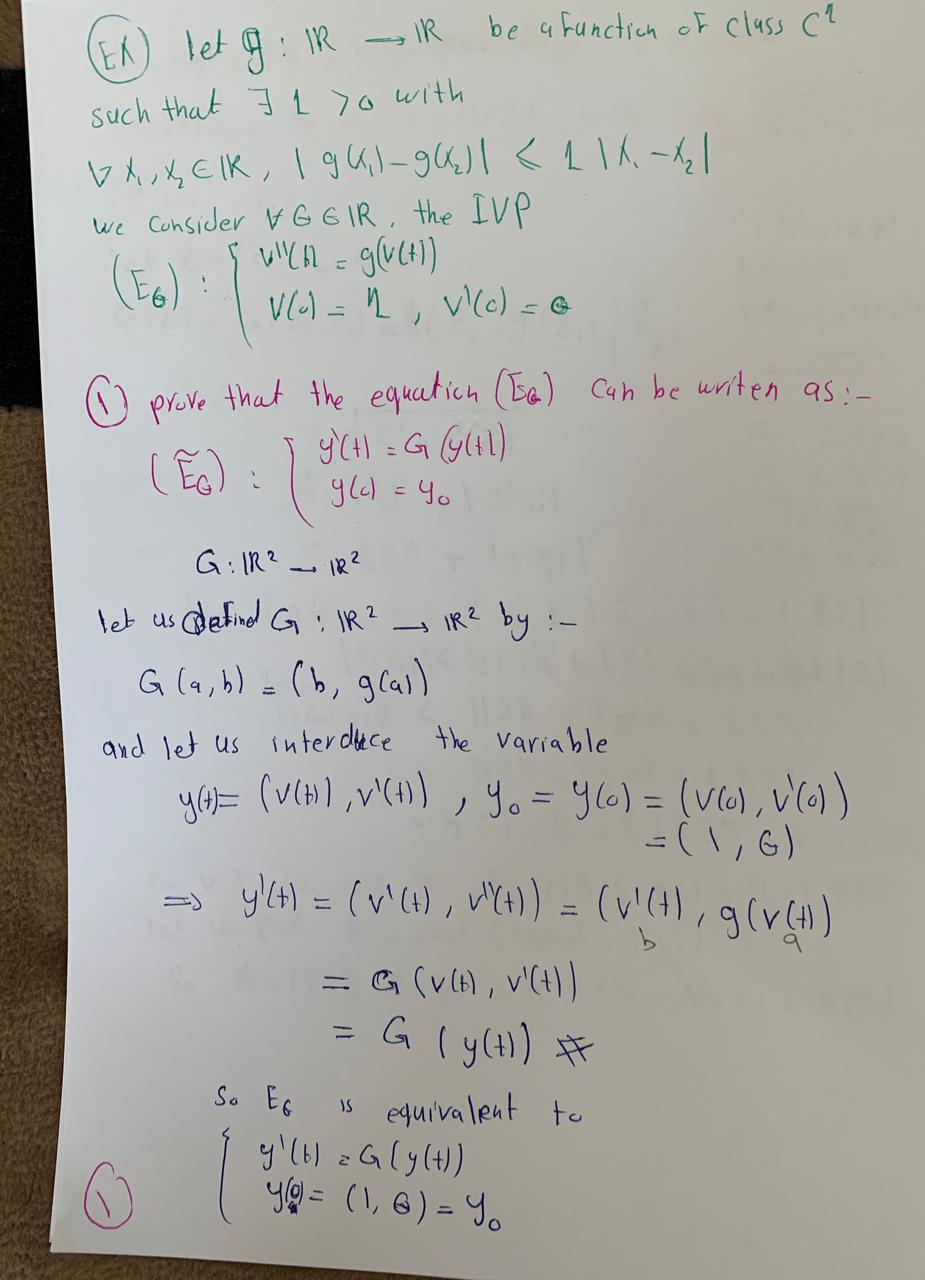 EX let g : ℝ → ℝ be a function of class C¹
such that ∃ L > 0 with
∀ x₁, x₂ ∈ ℝ, | g(x₁) - g(x₂) | ≤ L | x₁ - x₂ |
we consider ∀ G ∈ ℝ, the IVP
(E_G) : { v''(t) = g(v(t))
v(0) = 1 , v'(0) = G
① prove that the equation (E_G) can be writen as :-
(Ẽ_G) : { y'(t) = G (y(t))
y(0) = y₀
G : ℝ² → ℝ²
let us defind G : ℝ² → ℝ² by :-
G (a, b) = (b, g(a))
and let us interduce the variable
y(t) = (v(t), v'(t)) , y₀ = y(0) = (v(0), v'(0))
= (1, G)
⇒ y'(t) = (v'(t), v''(t)) = (v'(t), g(v(t))
b a
= G (v(t), v'(t))
= G ( y(t)) #
So E_G is equivalent to
{ y'(t) = G(y(t))
y(0) = (1, G) = y₀
①